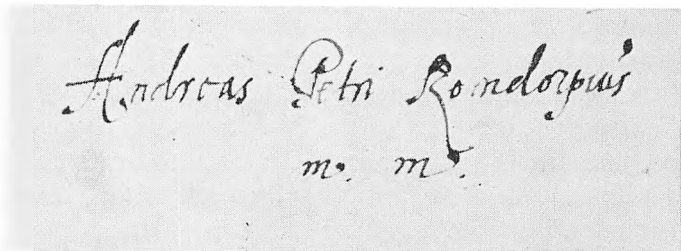 Andreas Petri Romdorpius
m. m.